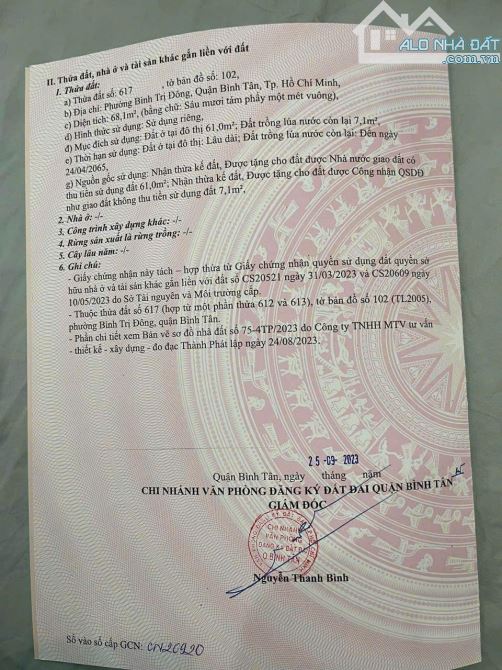 ALO NHÀ ĐẤT
alonhadat.com.vn
II. Thửa đất, nhà ở và tài sản khác gắn liền với đất
1. Thửa đất:
a) Thửa đất số: 617 , tờ bản đồ số: 102,
b) Địa chỉ: Phường Bình Trị Đông, Quận Bình Tân, Tp. Hồ Chí Minh,
c) Diện tích: 68,1m², (bằng chữ: Sáu mươi tám phẩy một mét vuông),
d) Hình thức sử dụng: Sử dụng riêng,
đ) Mục đích sử dụng: Đất ở tại đô thị 61,0m²; Đất trồng lúa nước còn lại 7,1m²,
e) Thời hạn sử dụng: Đất ở tại đô thị: Lâu dài; Đất trồng lúa nước còn lại: Đến ngày
24/04/2065,
g) Nguồn gốc sử dụng: Nhận thừa kế đất, Được tặng cho đất được Nhà nước giao đất có
thu tiền sử dụng đất 61,0m²; Nhận thừa kế đất, Được tặng cho đất được Công nhận QSDĐ
như giao đất không thu tiền sử dụng đất 7,1m²,
2. Nhà ở: -/-
3. Công trình xây dựng khác: -/-
4. Rừng sản xuất là rừng trồng: -/-
5. Cây lâu năm: -/-
6. Ghi chú:
- Giấy chứng nhận này tách – hợp thửa từ Giấy chứng nhận quyền sử dụng đất quyền sở
hữu nhà ở và tài sản khác gắn liền với đất số CS20521 ngày 31/03/2023 và CS20609 ngày
10/05/2023 do Sở Tài nguyên và Môi trường cấp.
- Thuộc thửa đất số 617 (hợp từ một phần thửa 612 và 613), tờ bản đồ số 102 (TL2005),
phường Bình Trị Đông, quận Bình Tân.
- Phần chi tiết xem Bản vẽ sơ đồ nhà đất số 75-4TP/2023 do Công ty TNHH MTV tư vấn
- thiết kế - xây dựng - đo đạc Thành Phát lập ngày 24/08/2023.
25-09-2023
Quận Bình Tân, ngày tháng năm
CHI NHÁNH VĂN PHÒNG ĐĂNG KÝ ĐẤT ĐAI QUẬN BÌNH TÂN
GIÁM ĐỐC
CHI NHÁNH
VĂN PHÒNG
ĐĂNG KÝ ĐẤT ĐAI
Q.BÌNH TÂN
Nguyễn Thanh Bình
Số vào sổ cấp GCN: CN20920